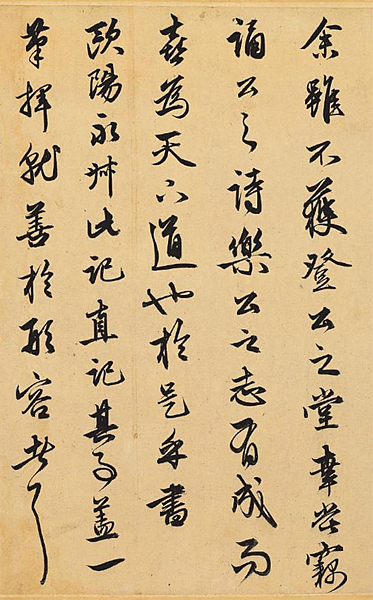 余雖不獲登公之堂幸嘗竊
誦公之詩樂公之志有成而
喜為天下道也於是乎書
歐陽永叔此記直記其事蓋一
筆揮就善於形容者耳